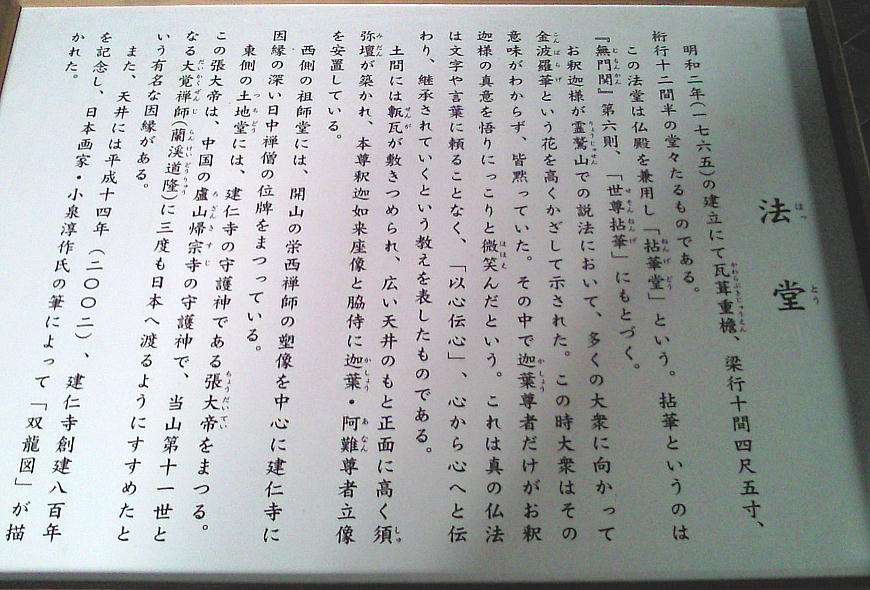 法堂
明和二年(一七六五)の建立にて瓦葺重檐、梁行十間四尺五寸、
桁行十二間半の堂々たるものである。
この法堂は仏殿を兼用し「拈華堂」という。拈華というのは
『無門関』第六則、「世尊拈華」にもとづく。
お釈迦様が霊鷲山での説法において、多くの大衆に向かって
金波羅華という花を高くかざして示された。この時大衆はその
意味がわからず、皆黙っていた。その中で迦葉尊者だけがお釈
迦様の真意を悟りにっこりと微笑んだという。これは真の仏法
は文字や言葉に頼ることなく、「以心伝心」、心から心へと伝
わり、継承されていくという教えを表したものである。
土間には瓪瓦が敷きつめられ、広い天井のもと正面に高く須
弥壇が築かれ、本尊釈迦如来座像と脇侍に迦葉・阿難尊者立像
を安置している。
西側の祖師堂には、開山の栄西禅師の塑像を中心に建仁寺に
因縁の深い日中禅僧の位牌をまつっている。
東側の土地堂には、建仁寺の守護神である張大帝をまつる。
この張大帝は、中国の廬山帰宗寺の守護神で、当山第十一世と
なる大覚禅師(蘭渓道隆)に三度も日本へ渡るようにすすめたと
いう有名な因縁がある。
また、天井には平成十四年(二〇〇二)、建仁寺創建八百年
を記念し、日本画家・小泉淳作氏の筆によって「双龍図」が描
かれた。